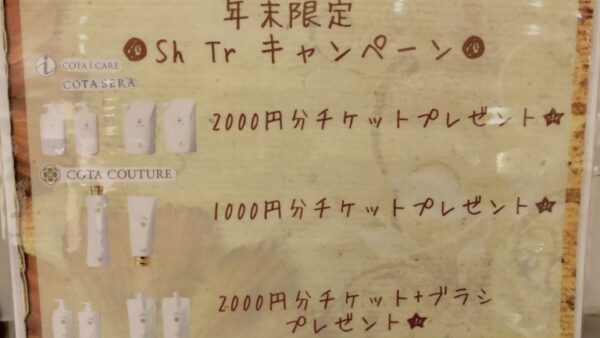 年末限定
Sh Tr キャンペーン
COTA i CARE
COTA SERA
2000円分チケットプレゼント
COTA COUTURE
1000円分チケットプレゼント
2000円分チケット+ブラシ
プレゼント